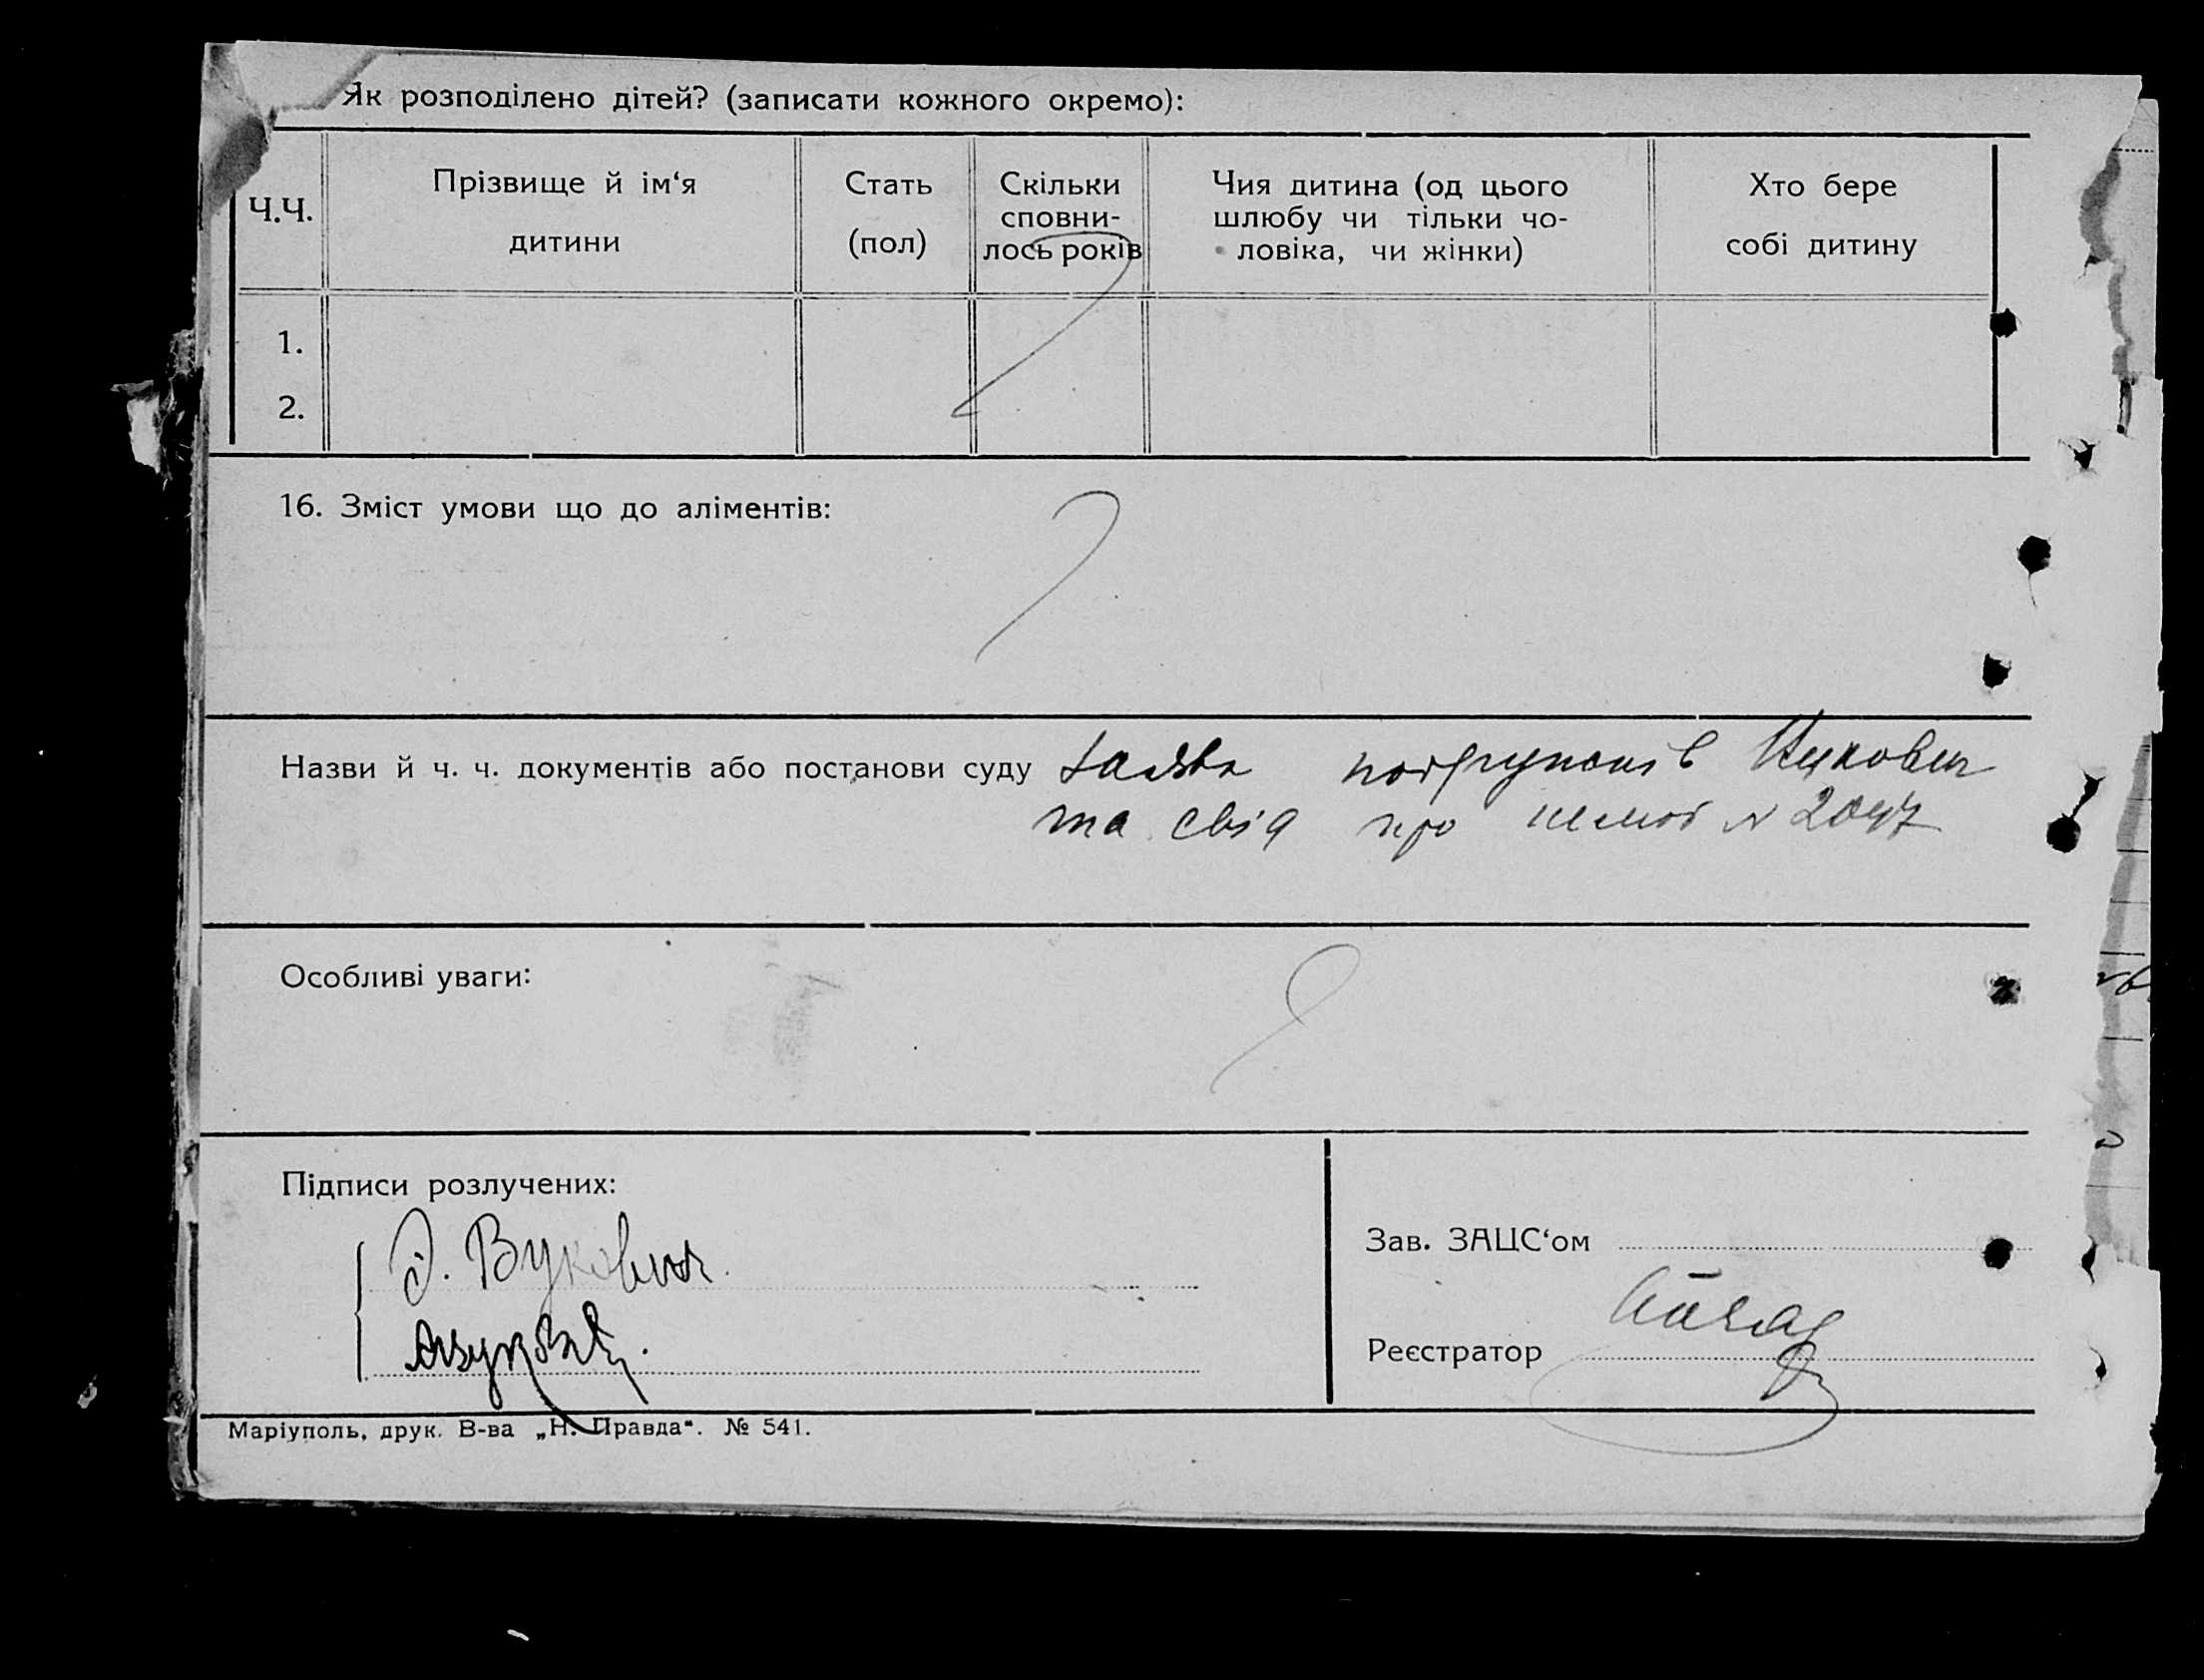 Як розподілено дітей? (записати кожного окремо):
Ч.Ч.
Прізвище й ім‘я
дитини
Стать
(пол)
Скільки
сповни-
лось років
Чия дитина (од цього
шлюбу чи тільки чо-
ловіка, чи жінки)
Хто бере
собі дитину
1.
2.
16. Зміст умови що до аліментів:
Назви й ч. ч. документів або постанови суду заява
та свід про шлюб N 2047
Особливі уваги:
Підписи розлучених:
Э. Вукович
Зав. ЗАЦС‘ом
Реєстратор
Маріуполь, друк. В-ва „Н. Правда“. № 541.